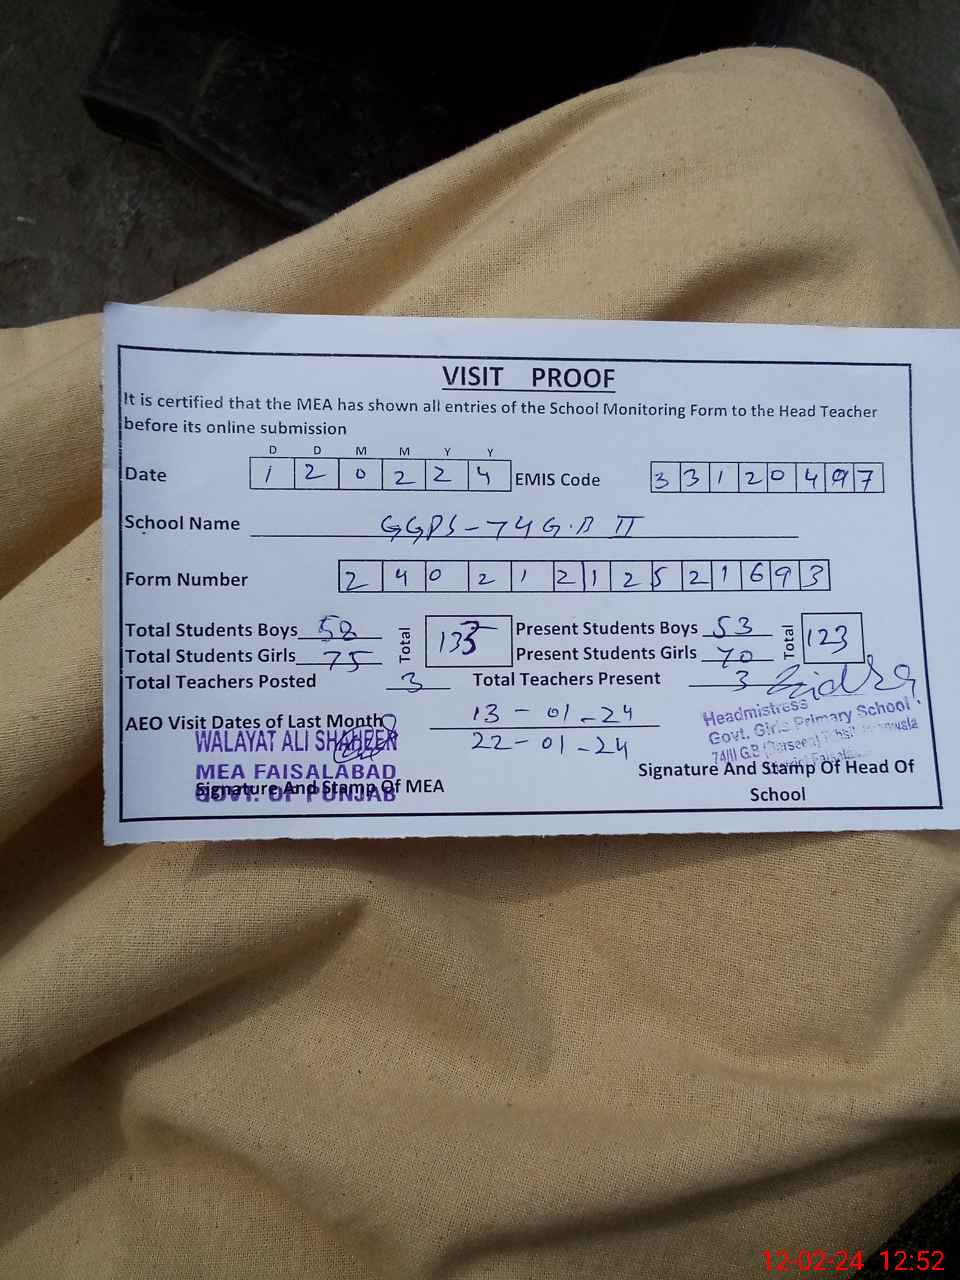 VISIT PROOF
It is certified that the MEA has shown all entries of the School Monitoring Form to the Head Teacher
before its online submission
D D M M Y Y
Date 1 2 0 2 2 4 EMIS Code 3 3 1 2 0 4 9 7
School Name GGPS-74 G.B II
Form Number 2 4 0 2 1 2 1 2 5 2 1 6 9 3
Total Students Boys 58 Total 133 Present Students Boys 53 Total 123
Total Students Girls 75 Present Students Girls 70
Total Teachers Posted 3 Total Teachers Present 3
AEO Visit Dates of Last Month 13-01-24
22-01-24
WALAYAT ALI SHAHEEN
MEA FAISALABAD
GOVT. OF PUNJAB
Signature And Stamp Of MEA
Headmistress
Govt. Girls Primary School
74/II G.B
Signature And Stamp Of Head Of
School
12-02-24 12:52